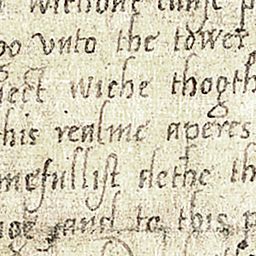 without cause p
go vnto the tower
ject wiche thogth
this realme aperes
mefullist dethe th
and to this p